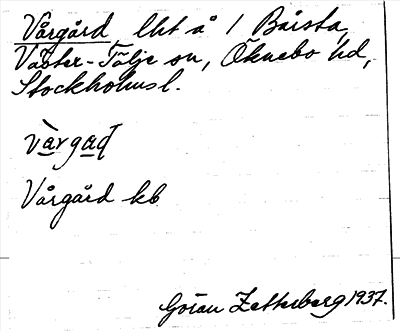 Vårgård, lht å 1 Bårsta,
Väster-Tälje sn, Öknebo hd,
Stockholms l.
vàrgad
Vårgård kb
Göran Zetterberg 1937.